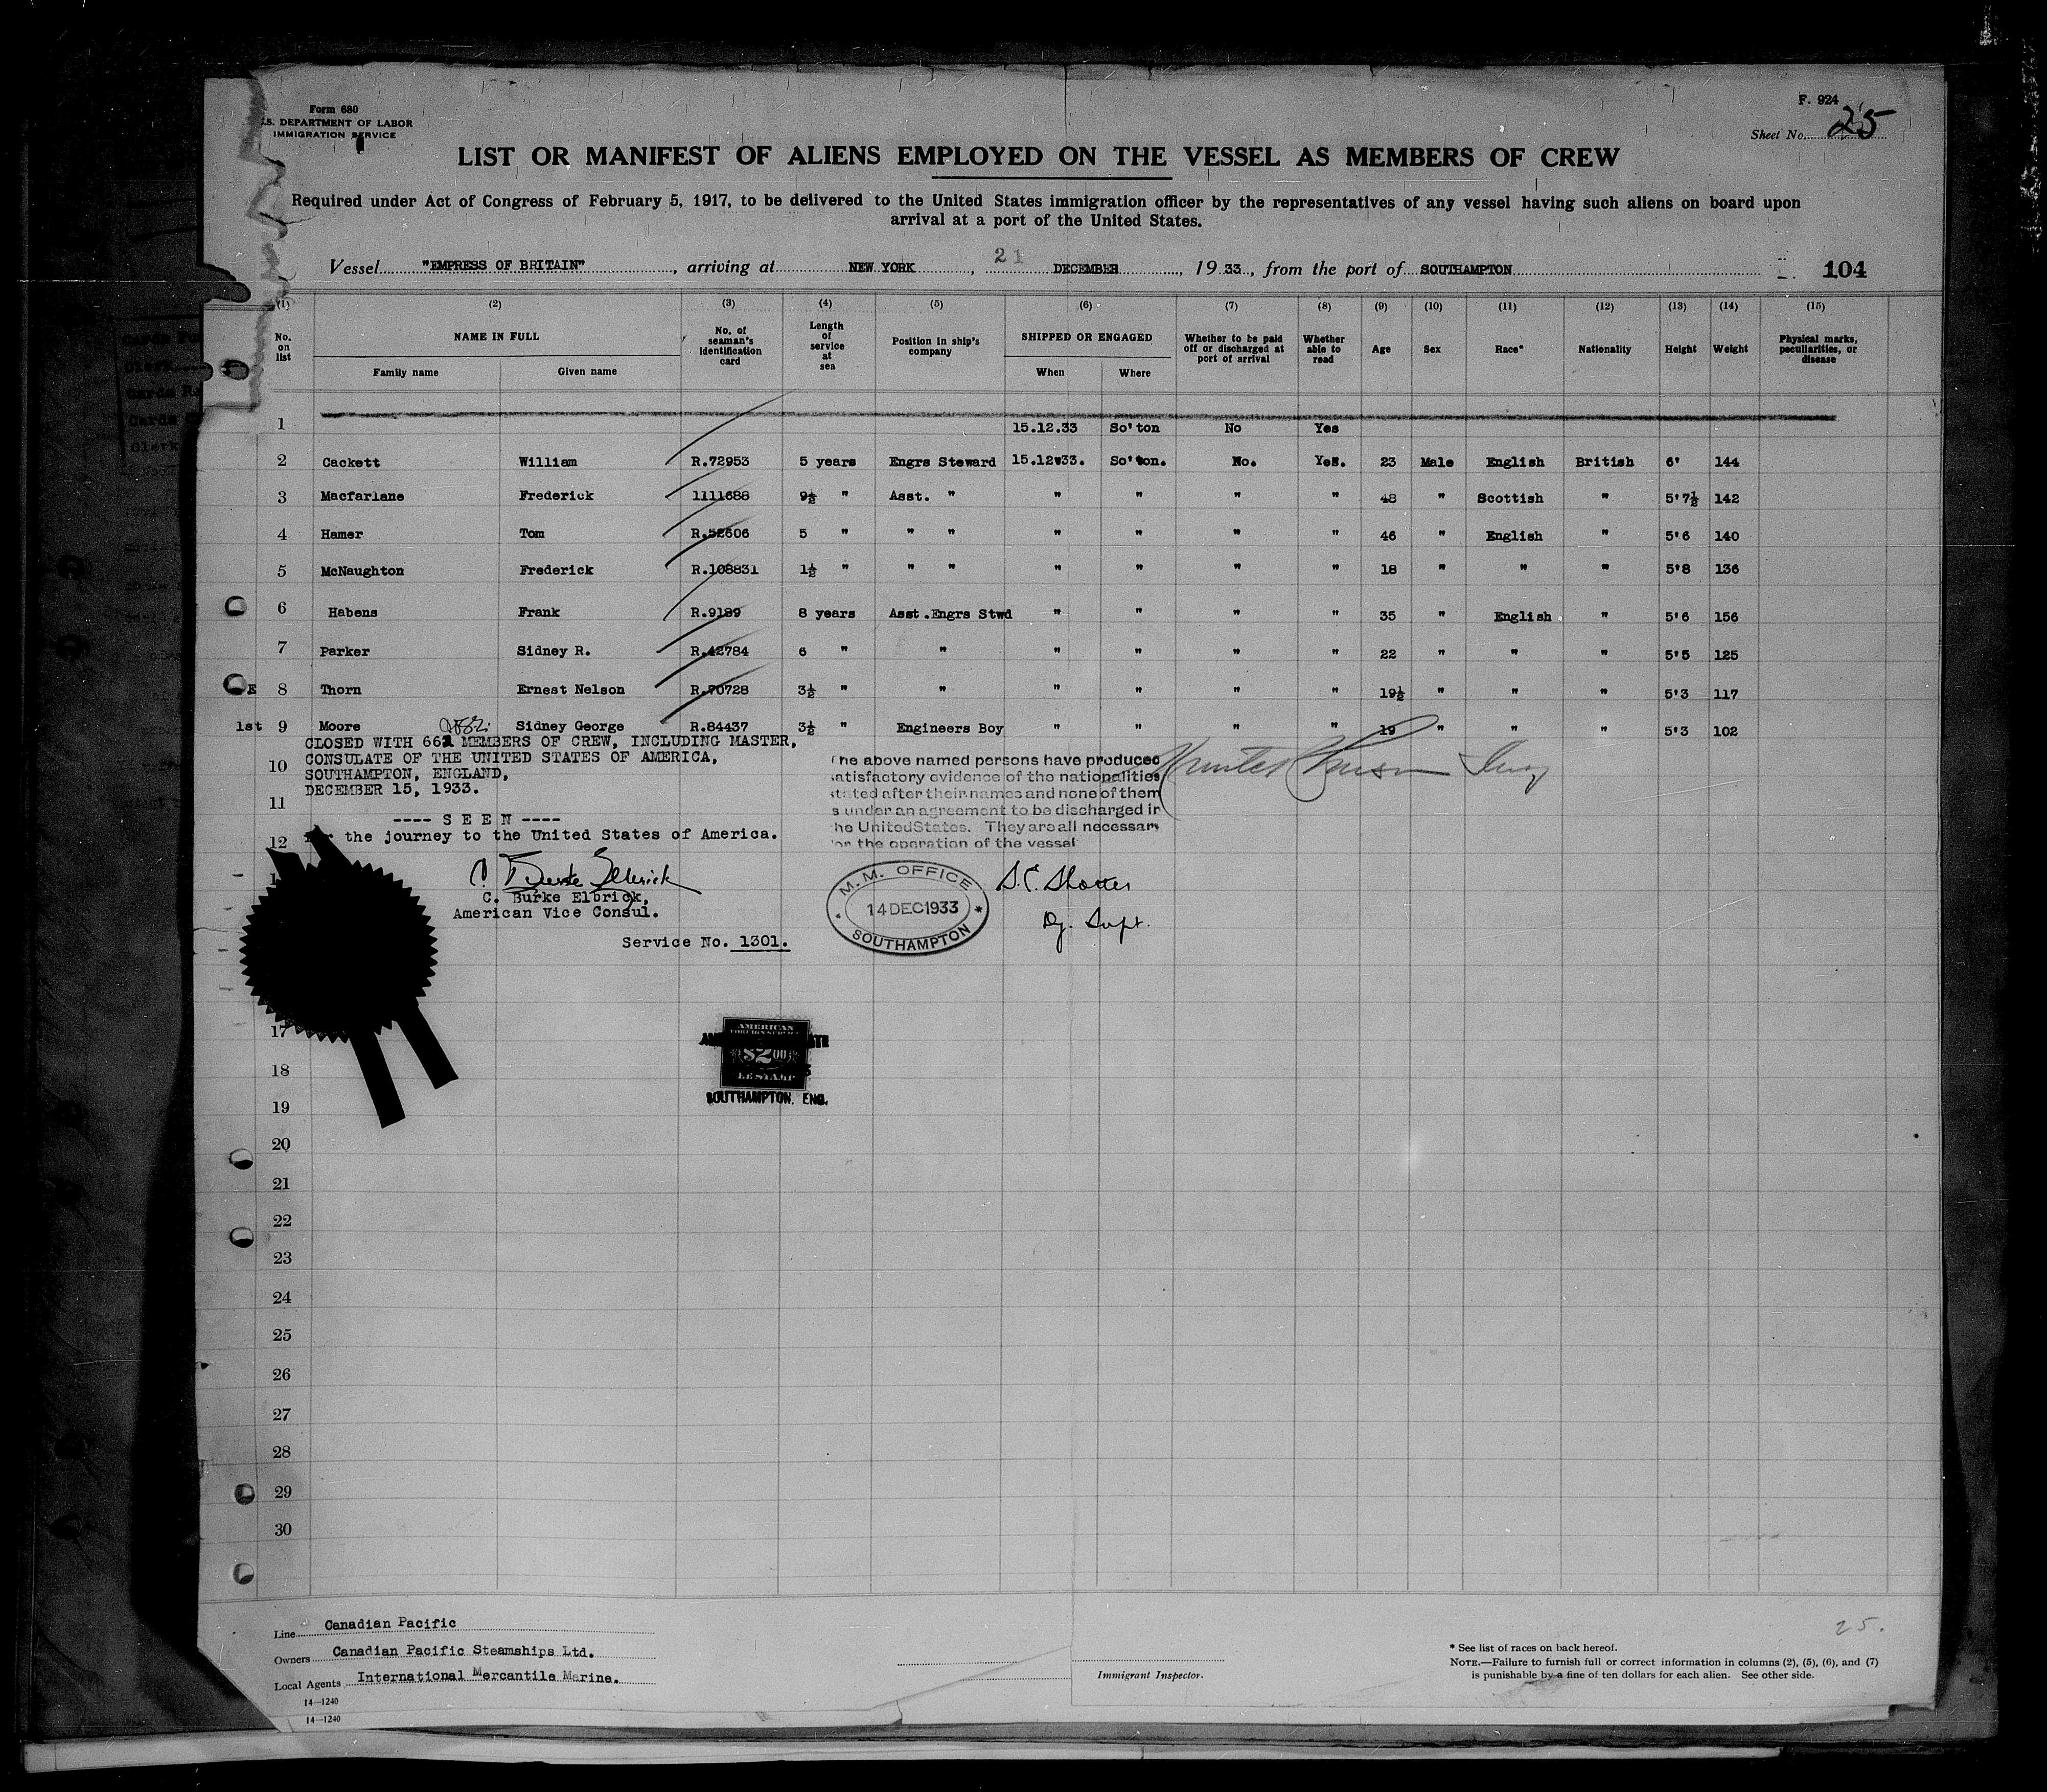 Form 680
U.S. DEPARTMENT OF LABOR
IMMIGRATION SERVICE
F. 924
Sheet No. 25
LIST OR MANIFEST OF ALIENS EMPLOYED ON THE VESSEL AS MEMBERS OF CREW
Required under Act of Congress of February 5, 1917, to be delivered to the United States immigration officer by the representatives of any vessel having such aliens on board upon
arrival at a port of the United States.
Vessel "EMPRESS OF BRITAIN", arriving at NEW YORK, 21 DECEMBER, 1933, from the port of SOUTHAMPTON 104
(1) (2) (3) (4) (5) (6) (7) (8) (9) (10) (11) (12) (13) (14) (15)
No. on list NAME IN FULL Family name Given name No. of seaman's identification card Length of service at sea Position in ship's company SHIPPED OR ENGAGED When Where Whether to be paid off or discharged at port of arrival Whether able to read Age Sex Race* Nationality Height Weight Physical marks, peculiarities, or disease
1 15.12.33 So'ton No Yes
2 Cackett William R.72953 5 years Engrs Steward 15.12.33. So'ton. No. Yes. 23 Male English British 6' 144
3 Macfarlane Frederick 1111688 9½ " Asst. " " " " " 48 " Scottish " 5'7½ 142
4 Hamer Tom R.52606 5 " " " " " " " 46 " English " 5'6 140
5 McNaughton Frederick R.108831 1½ " " " " " " " 18 " " " 5'8 136
6 Habens Frank R.9189 8 years Asst.Engrs Stwd " " " " 35 " English " 5'6 156
7 Parker Sidney R. R.42784 6 " " " " " " 22 " " " 5'5 125
8 Thorn Ernest Nelson R.70728 3½ " " " " " " 19½ " " " 5'3 117
1st 9 Moore Sidney George R.84437 3½ " Engineers Boy " " " " 19 " " " 5'3 102
CLOSED WITH 662 MEMBERS OF CREW, INCLUDING MASTER,
CONSULATE OF THE UNITED STATES OF AMERICA,
10 SOUTHAMPTON, ENGLAND,
DECEMBER 15, 1933.
11
---- S E E N ----
12 the journey to the United States of America.
The above named persons have produced
satisfactory evidence of the nationalities
stated after their names and none of them
s under an agreement to be discharged in
he United States. They are all necessary
for the operation of the vessel
C. Burke Elbrick
C. Burke Elbrick,
American Vice Consul.
Service No. 1301.
M.M. OFFICE
14 DEC 1933
SOUTHAMPTON
S.C. Shotter
Dy. Supt.
AMERICAN
FOREIGN SERVICE
$2.00
FEE STAMP
SOUTHAMPTON, ENG.
17
18
19
20
21
22
23
24
25
26
27
28
29
30
Line Canadian Pacific
Owners Canadian Pacific Steamships Ltd.
Local Agents International Mercantile Marine.
14—1240
14—1240
Immigrant Inspector.
25.
* See list of races on back hereof.
NOTE.—Failure to furnish full or correct information in columns (2), (5), (6), and (7)
is punishable by a fine of ten dollars for each alien. See other side.